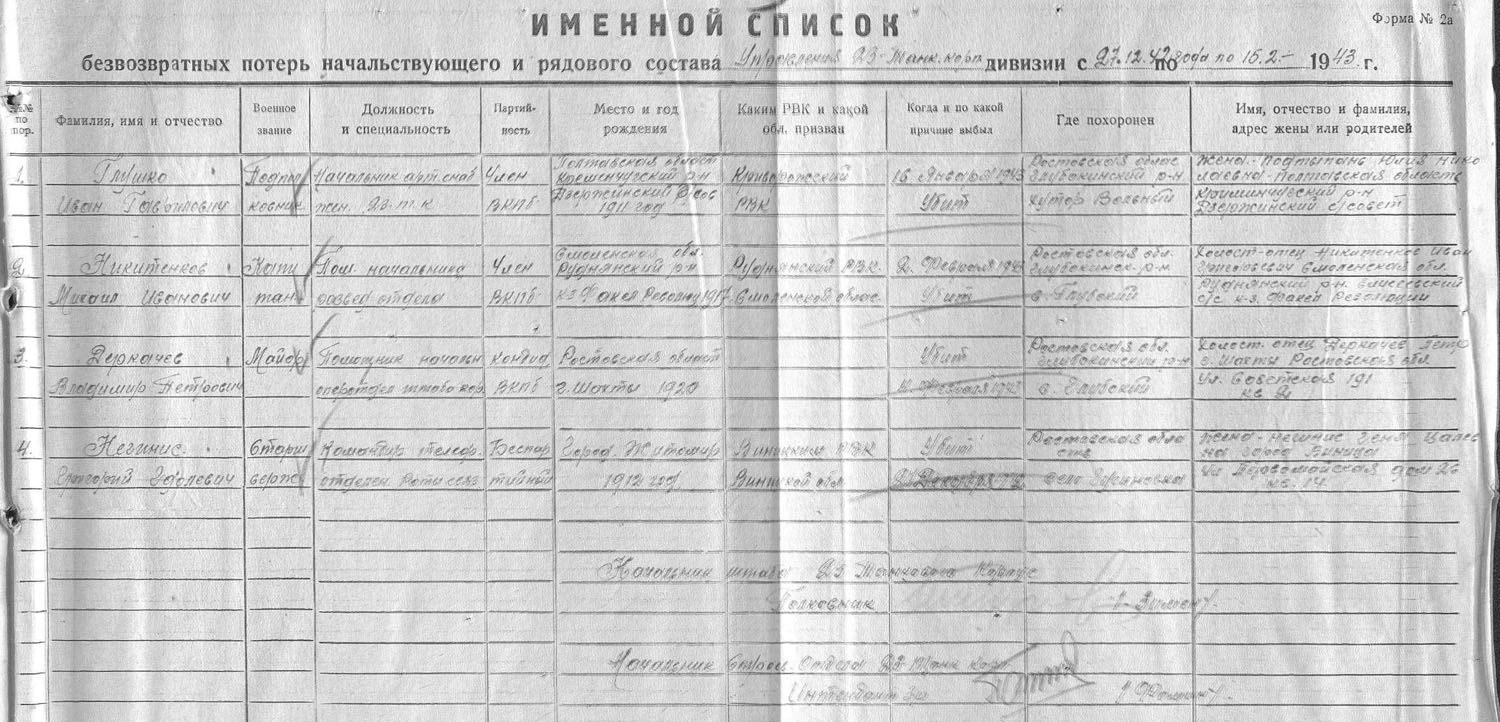 ИМЕННОЙ СПИСОК
Форма № 2а
безвозвратных потерь начальствующего и рядового состава Управления 23 Танк. корп. дивизии с 27.12.42 года по по 15.2.- 1943 г.
№№ по пор.
Фамилия, имя и отчество
Военное звание
Должность и специальность
Партий-ность
Место и год рождения
Каким РВК и какой обл. призван
Когда и по какой причине выбыл
Где похоронен
Имя, отчество и фамилия, адрес жены или родителей
1. Глушко
Иван Гаврилович
Подпол
ковник
Начальник арт. снаб
жен. 23 т.к
Член
ВКПб
Полтавская област
Кременчугский р-н
Дзержинский с/сов
1911 год
Криворожский
РВК
16 Января 1943
Убит
Ростовская облас
Глубокинский р-н
хутор Вольный
Жена - Подтыпань Юлия Нико
лаевна - Полтавская область
р-н
Дзержинский с/совет
2. Никитенков
Михаил Иванович
Капи
тан
Пом. начальника
развед отдела
Член
ВКПб
Смоленская обл.
Руднянский р-н
к-з Факел Револю 1917
Руднянский РВК.
Смоленской облас.
2 Февраля 1943
Убит
Ростовская обл.
Глубокинск. р-н
с. Глубокий
Холост - отец Никитенков Иван
Григорьевич Смоленская обл.
Руднянский р-н
с/с к-з. Факел Революции
3. Деркачев
Владимир Петрович
Майор
Помощник начальн
оперотдел штаба кор.
кандид
ВКПб
Ростовская област
г. Шахты 1920
Убит
Февраля 1943
Ростовская обл.
Глубокинский р-н
с. Глубокий
Холост. отец Деркачев Петр
г. Шахты Ростовская обл.
Ул. Советская 191
кв 2
4. Негинис
Григорий
Старш
серж
Командир телегр.
отделен. Роты связ
Беспар
тийный
Город Житомир
1912 год
РВК
обл.
Убит
Ростовская обла
сть
село
Жена - Негинис
на город Виница
Ул Первомайская дом 26
кв. 14
Начальник штаба 23 Танкового Корпуса
Полковник
Начальник Строев. Отдела 23 Танк Корп.
Интендант 3 р.